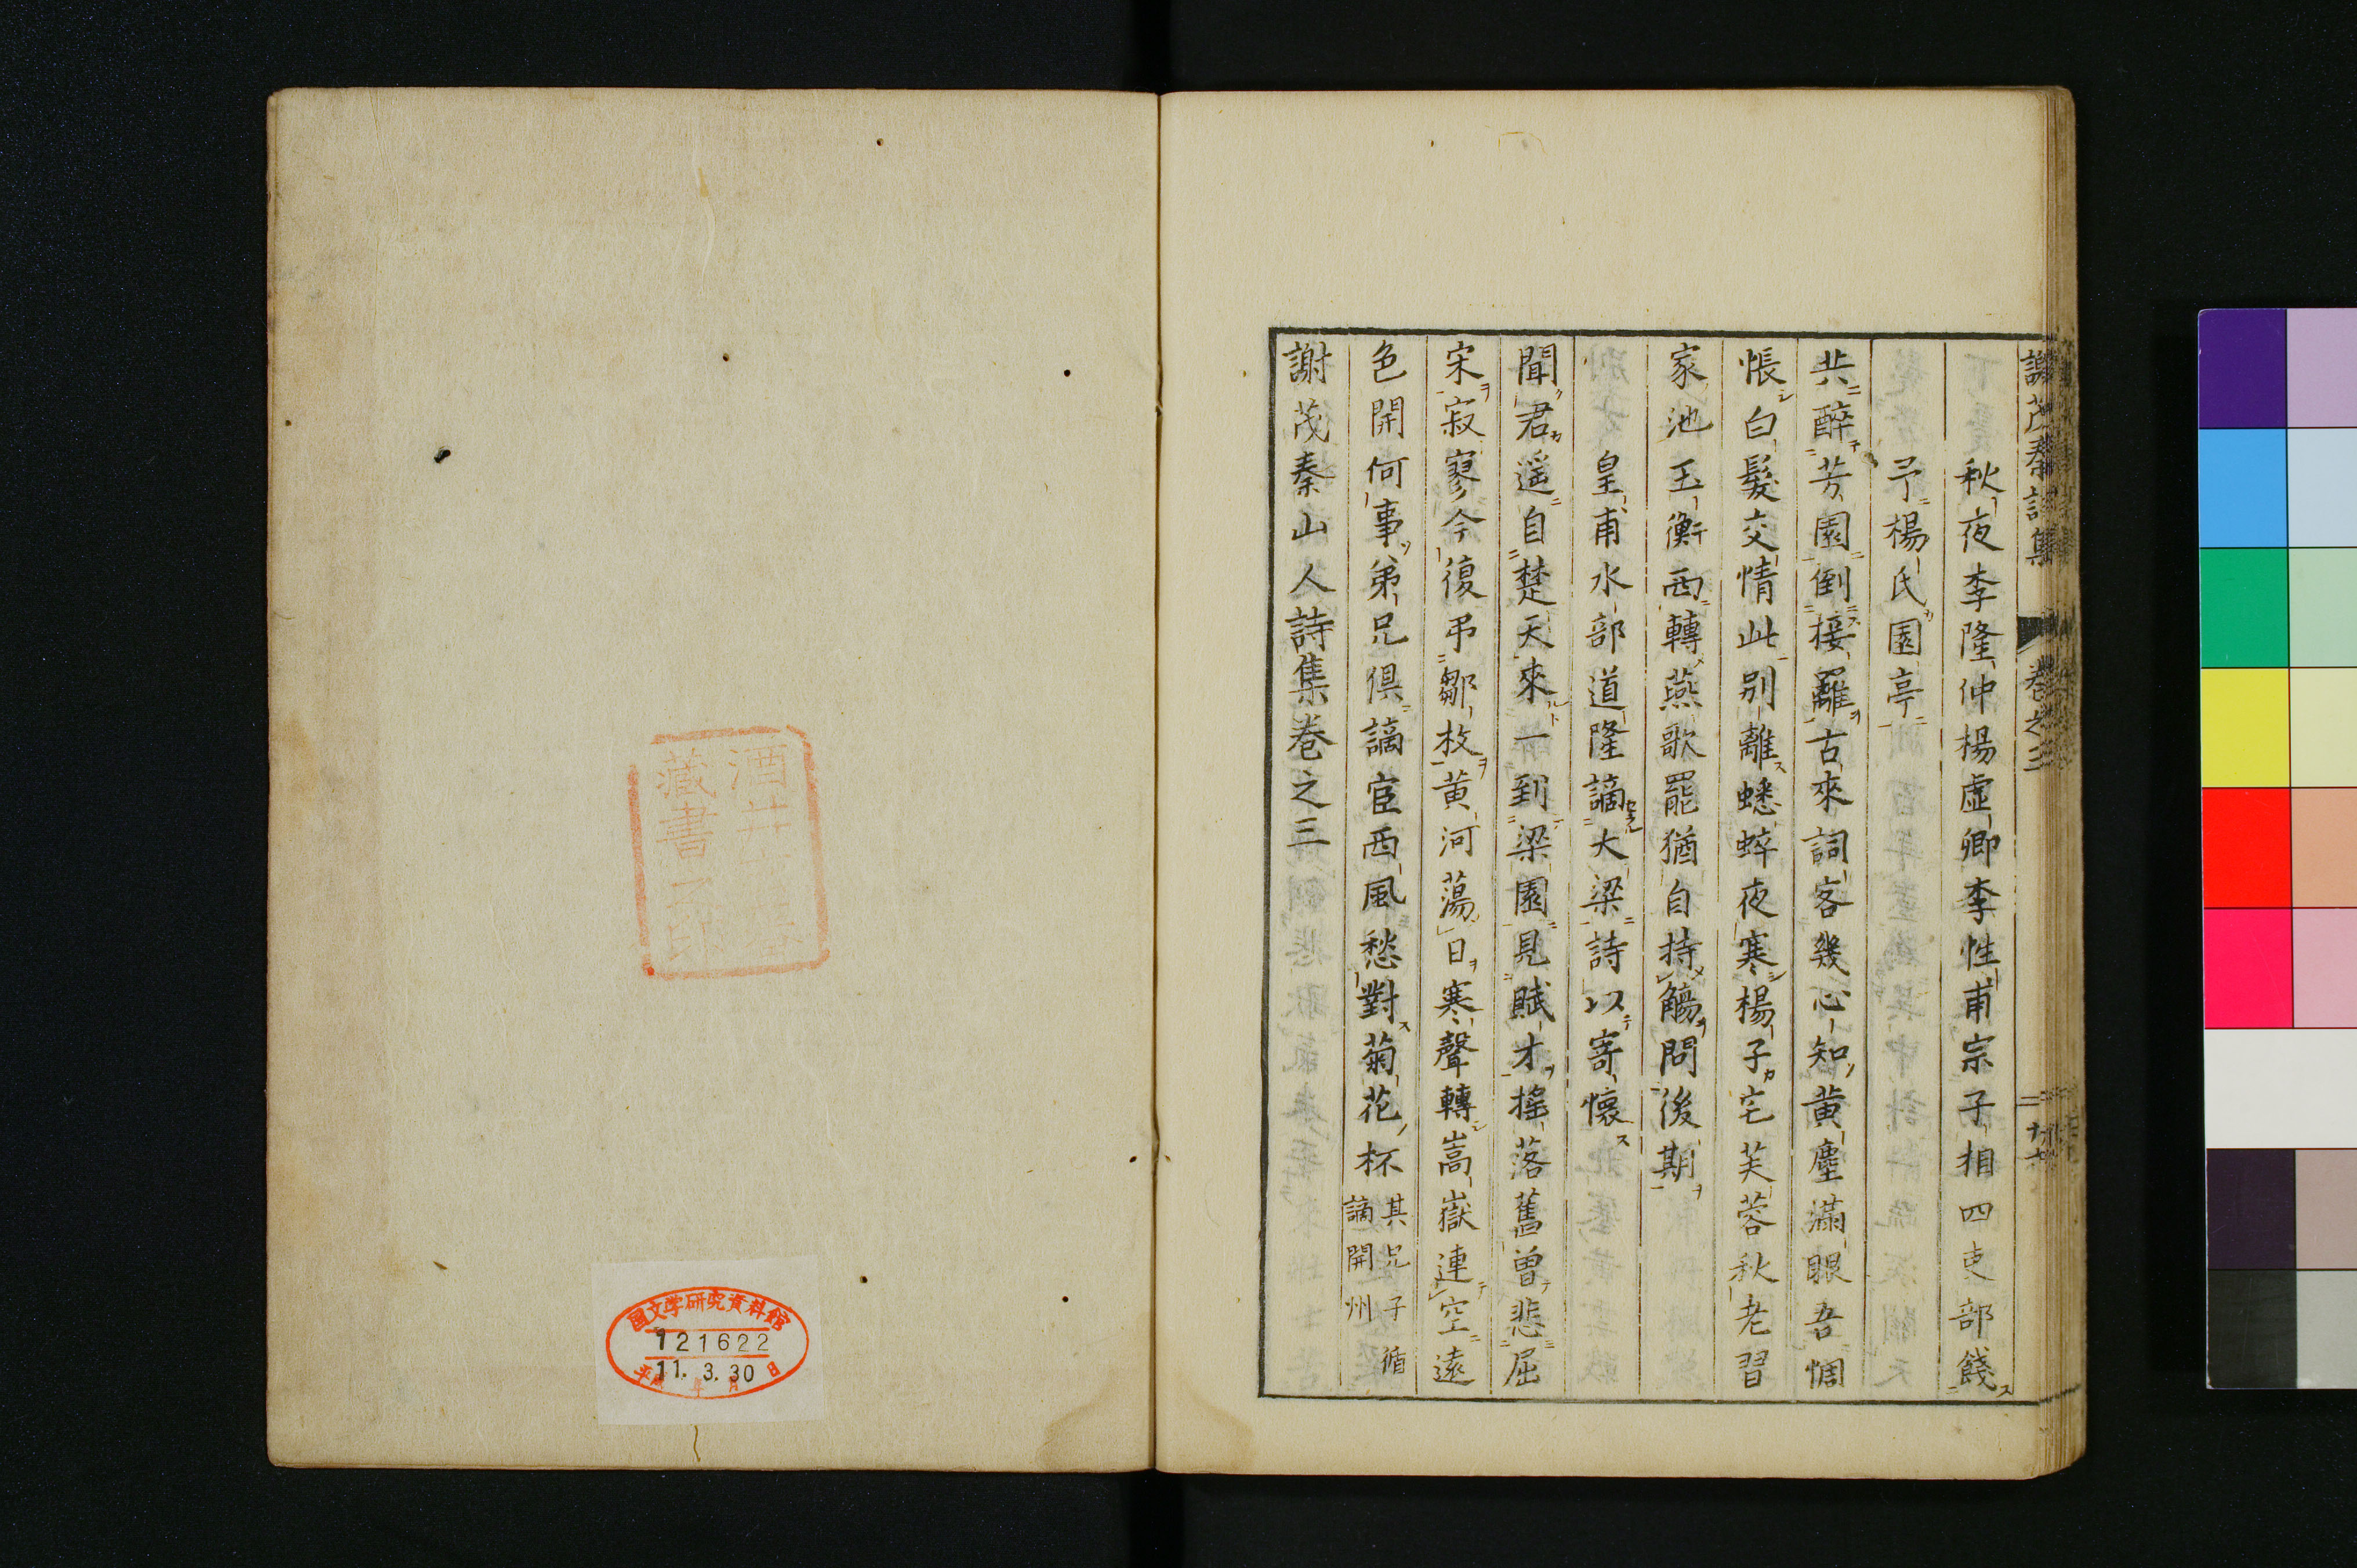 秋夜李隆仲楊虛卿李性甫宗子相四吏部餞
予楊氏園亭
共醉芳園倒接䍦古來詞客幾心知黃塵滿眼吾惆
悵白髮交情此別離蟋蟀夜寒楊子宅芙蓉秋老習
家池玉衡西轉燕歌罷猶自持觴問後期
皇甫水部道隆謫大梁詩以寄懷
聞君遥自楚天來一到梁園見賦才搖落舊曾悲屈
宋寂寥今復弔鄒枚黃河蕩日寒聲轉嵩嶽連空遠
色開何事弟兄俱謫宦西風愁對菊花杯
其兄子循
謫開州
謝茂秦山人詩集卷之三
藏書之印
國文学研究資料館
121622
11.3.30
年月日